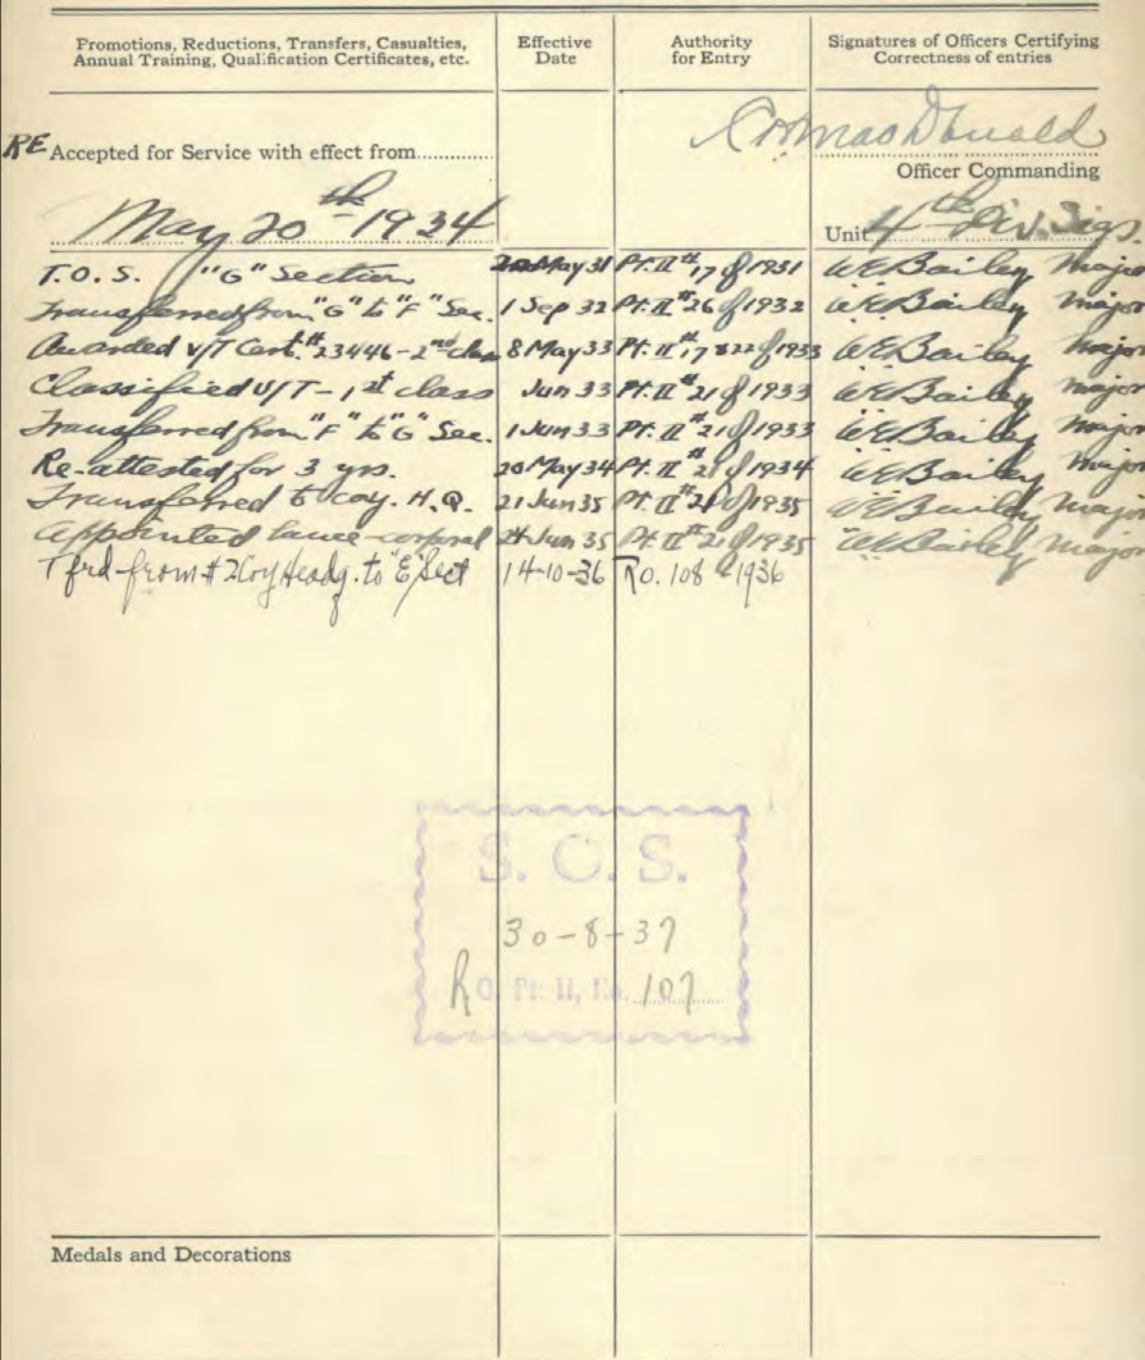 Promotions, Reductions, Transfers, Casualties, Annual Training, Qualification Certificates, etc.
Effective Date
Authority for Entry
Signatures of Officers Certifying Correctness of entries
RE Accepted for Service with effect from
MacDonald
Officer Commanding
May 20th 1934
Unit 4th Div. Sigs.
T.O.S. "G" Section May 31 Pt. II #17 of 1931 WE Bailey Major
Transferred from "G" to "F" Sec. 1 Sep 32 Pt. II #26 of 1932 WE Bailey Major
Awarded V/T Cert. #23446 - 2nd class 8 May 33 Pt. II #17 & 22 of 1933 WE Bailey Major
Classified V/T - 1st class Jun 33 Pt. II #21 of 1933 WE Bailey Major
Transferred from "F" to "G" Sec. 1 Jun 33 Pt. II #21 of 1933 WE Bailey Major
Re-attested for 3 yrs. 20 May 34 Pt. II #21 of 1934 WE Bailey Major
Transferred to Coy. H.Q. 21 Jun 35 Pt. II #21 of 1935 WE Bailey Major
Appointed lance-corporal Jun 35 Pt. II #21 of 1935 WE Bailey Major
Tfrd from #2 Coy Headq. to "E" Sect 14-10-36 RO. 108 1936
S. O. S.
30-8-37
RO. Pt. II, No. 107
Medals and Decorations